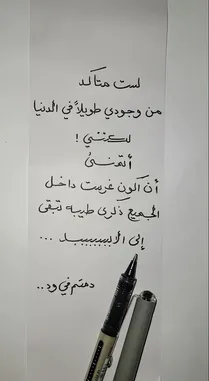 لست متأكد
من وجودي طويلاً في الدنيا
لكنني !
أتمنىُ
أن أكون غرست داخل
الجميع ذكرى طيبه تبقى
إلى الأبـــــــد ...
دمتم في ود..